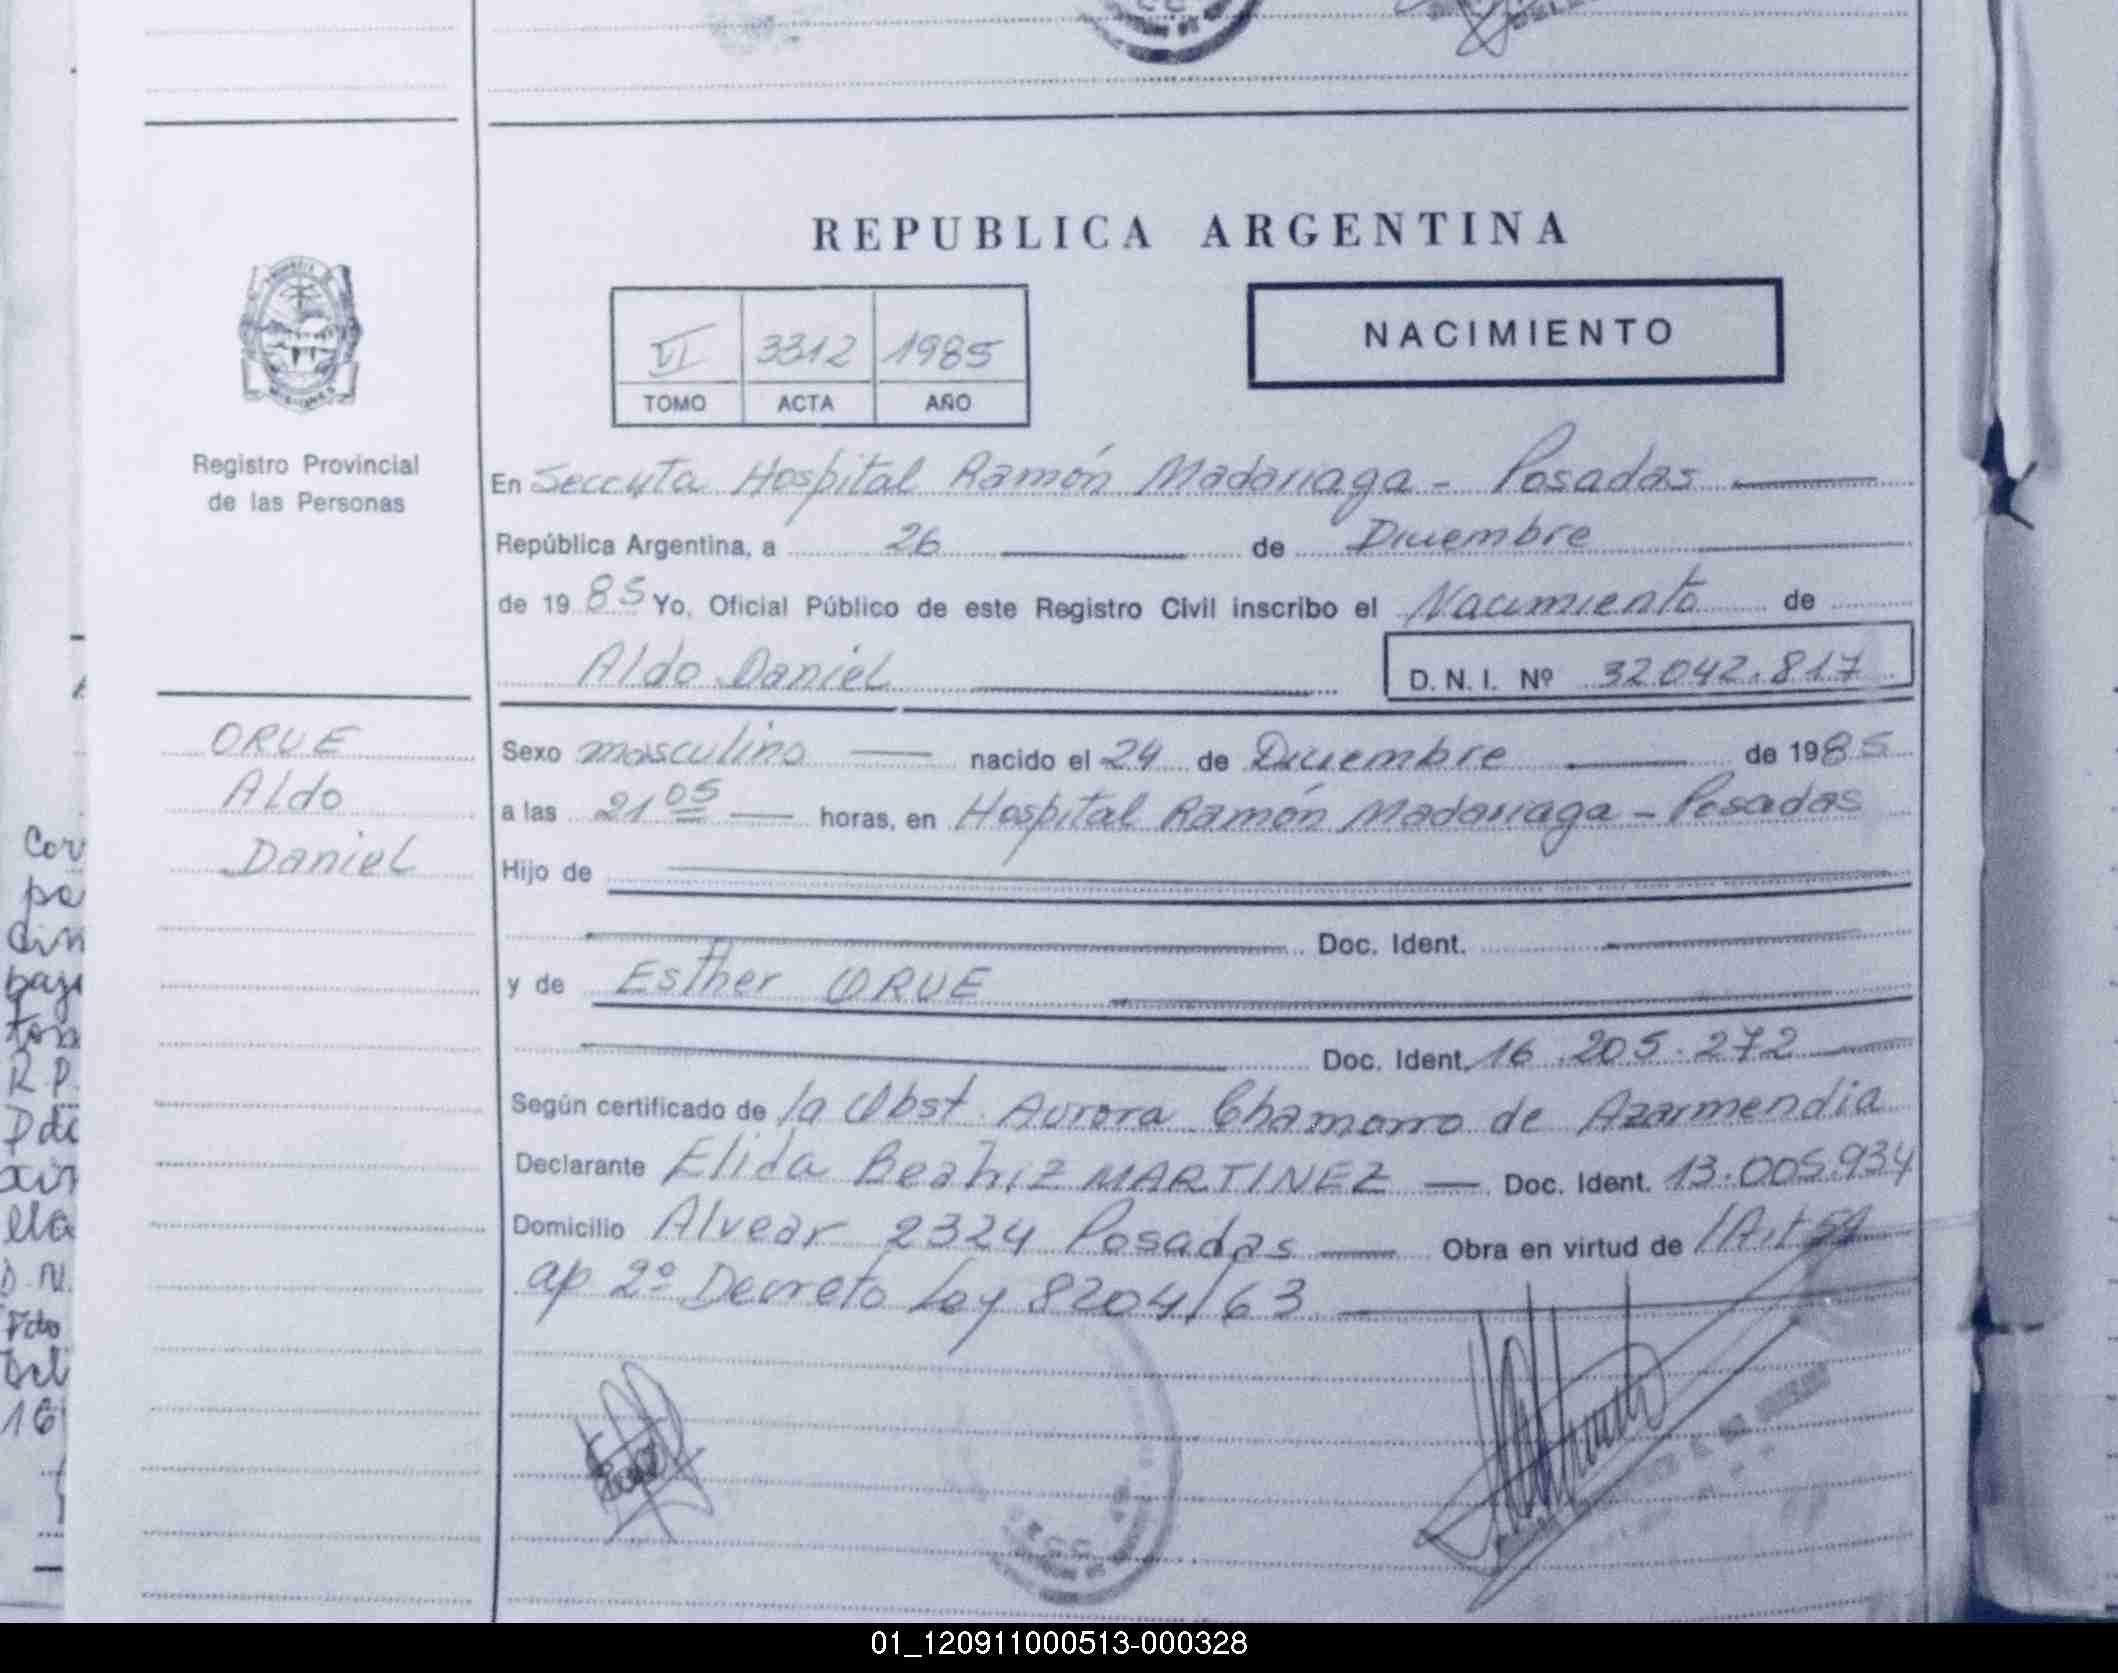 REPUBLICA ARGENTINA
VI 3312 1985
TOMO ACTA AÑO
NACIMIENTO
Registro Provincial
de las Personas
En Seccuta Hospital Ramón Madariaga - Posadas
República Argentina, a 26 de Diciembre
de 1985 Yo, Oficial Público de este Registro Civil inscribo el Nacimiento de
Aldo Daniel D. N. I. Nº 32042.817
ORUE
Aldo
Daniel
Sexo masculino nacido el 24 de Diciembre de 1985
a las 21 05 horas, en Hospital Ramón Madariaga - Posadas
Hijo de
Doc. Ident.
y de Esther ORUE
Doc. Ident. 16.205.272
Según certificado de la Obst. Aurora Chamorro de Azarmendia
Declarante Elida Beatriz MARTINEZ — Doc. Ident. 13.005.934
Domicilio Alvear 2324 Posadas — Obra en virtud de /Art 54
ap 2º Decreto Ley 8204/63
R.P.
ella
D.N.
16
01_120911000513-000328